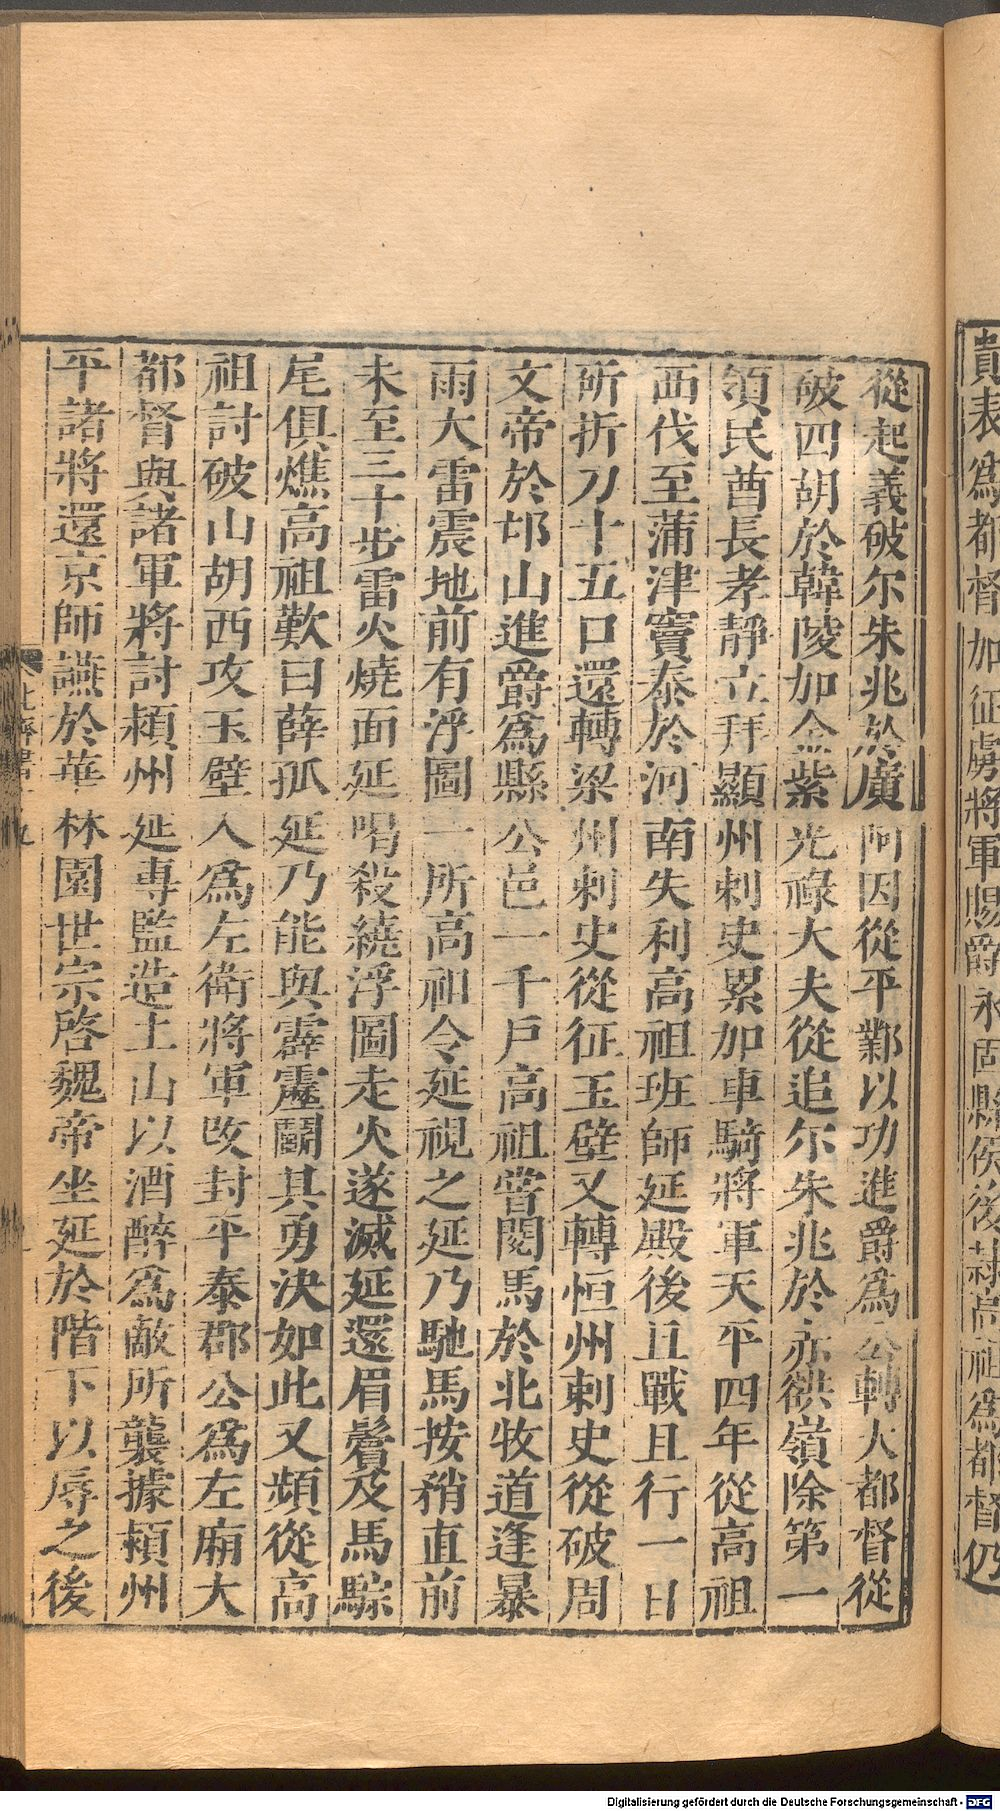 貴表爲都督加征虜將軍賜爵永固縣侯後隷高祖爲都督仍
從起義破尔朱兆於廣阿因從平鄴以功進爵爲公轉大都督從
破四胡於韓陵加金紫光祿大夫從追尔朱兆於赤谼嶺除第一
領民酋長孝靜立拜顯州刺史累加車騎將軍天平四年從高祖
西伐至蒲津竇泰於河南失利高祖班師延殿後且戰且行一日
斫折刀十五口還轉梁州刺史從征玉壁又轉恒州刺史從破周
文帝於邙山進爵爲縣公邑一千戶高祖嘗閱馬於北牧道逢暴
雨大雷震地前有浮圖一所高祖令延視之延乃馳馬按矟直前
未至三十步雷火燒面延唱殺繞浮圖走火遂滅延還眉鬢及馬騣
尾俱燋高祖歎曰薛孤延乃能與霹靂鬭其勇決如此又頻從高
祖討破山胡西攻玉壁入爲左衛將軍改封平泰郡公爲左廂大
都督與諸軍將討頴州延專監造土山以酒醉爲敵所襲據頴州
平諸將還京師讌於華林園世宗啓魏帝坐延於階下以辱之後
北齊書十九
Digitalisierung gefördert durch die Deutsche Forschungsgemeinschaft - DFG